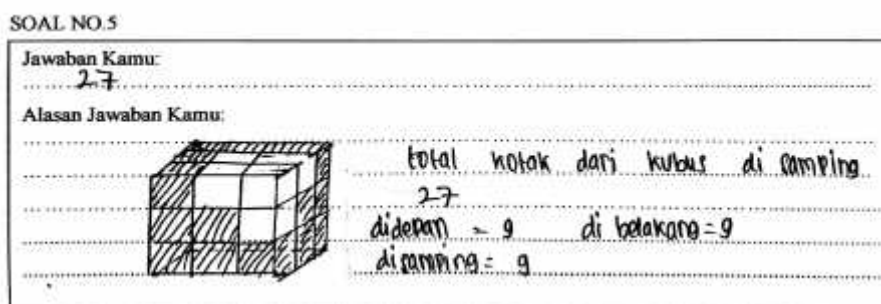 SOAL NO.5
Jawaban Kamu:
27
Alasan Jawaban Kamu:
total kotak dari kubus di samping
27
didepan = 9 di belakang = 9
disamping = 9